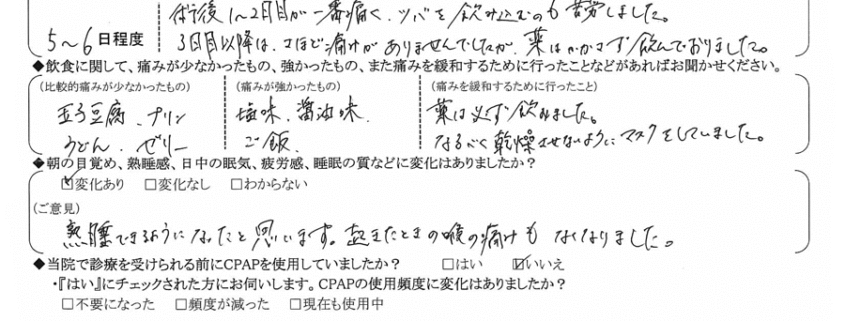 術後1~2日目が一番痛く、ツバを飲み込むのも苦労しました。
5~6日程度 3日目以降は、さほど痛みがありませんでしたが、薬はかかさず飲んでおりました。
◆飲食に関して、痛みが少なかったもの、強かったもの、また痛みを緩和するために行ったことなどがあればお聞かせください。
(比較的痛みが少なかったもの) (痛みが強かったもの) (痛みを緩和するために行ったこと)
玉子豆腐、プリン 塩味、醤油味、 薬は必ず飲みました。
うどん、ゼリー ご飯、 なるべく乾燥させないようにマスクをしていました。
◆朝の目覚め、熟睡感、日中の眠気、疲労感、睡眠の質などに変化はありましたか?
☑変化あり □変化なし □わからない
(ご意見)
熟睡できるようになったと思います。起きたときの喉の痛みもなくなりました。
◆当院で診療を受けられる前にCPAPを使用していましたか? □はい ☑いいえ
・『はい』にチェックされた方にお伺いします。CPAPの使用頻度に変化はありましたか?
□不要になった □頻度が減った □現在も使用中